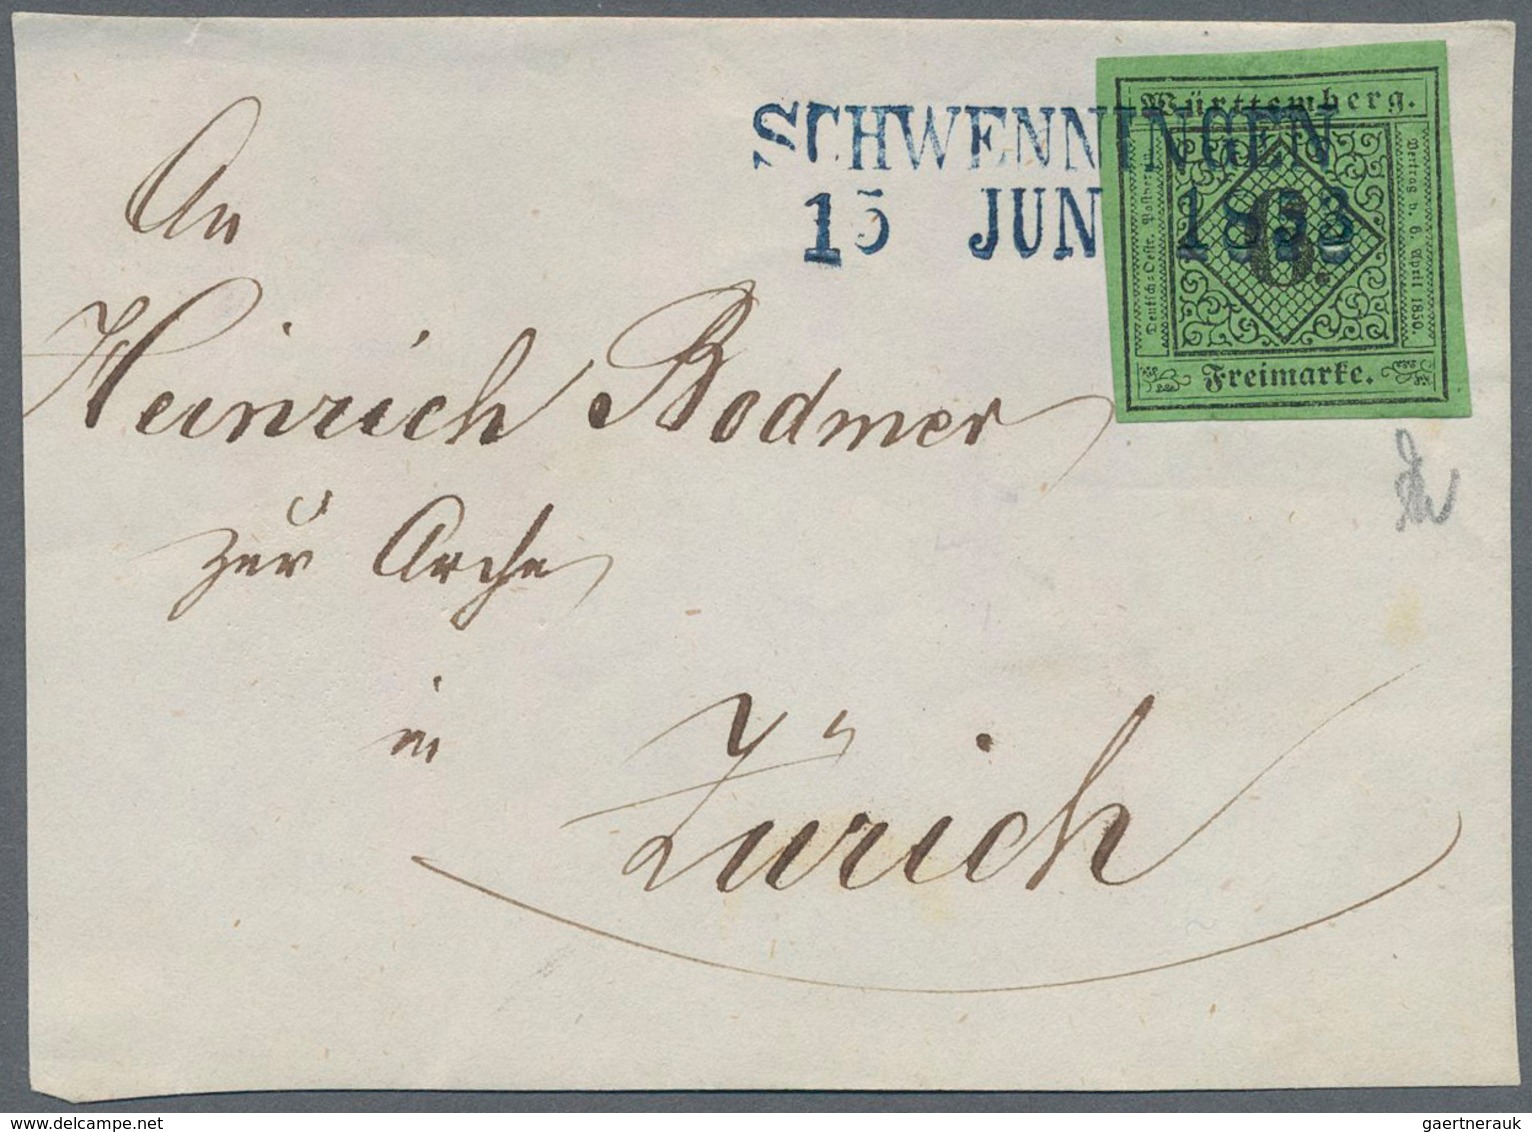 SCHWENNINGEN
15 JUN 1853
Württemberg.
Deutsch-Oestr. Postverein
6.
Vertrag v. 6. April 1850.
Freimarke.
An
Heinrich Bodmer
zur Arche
in
Zürich
gaertnerauk @ delcampe.net